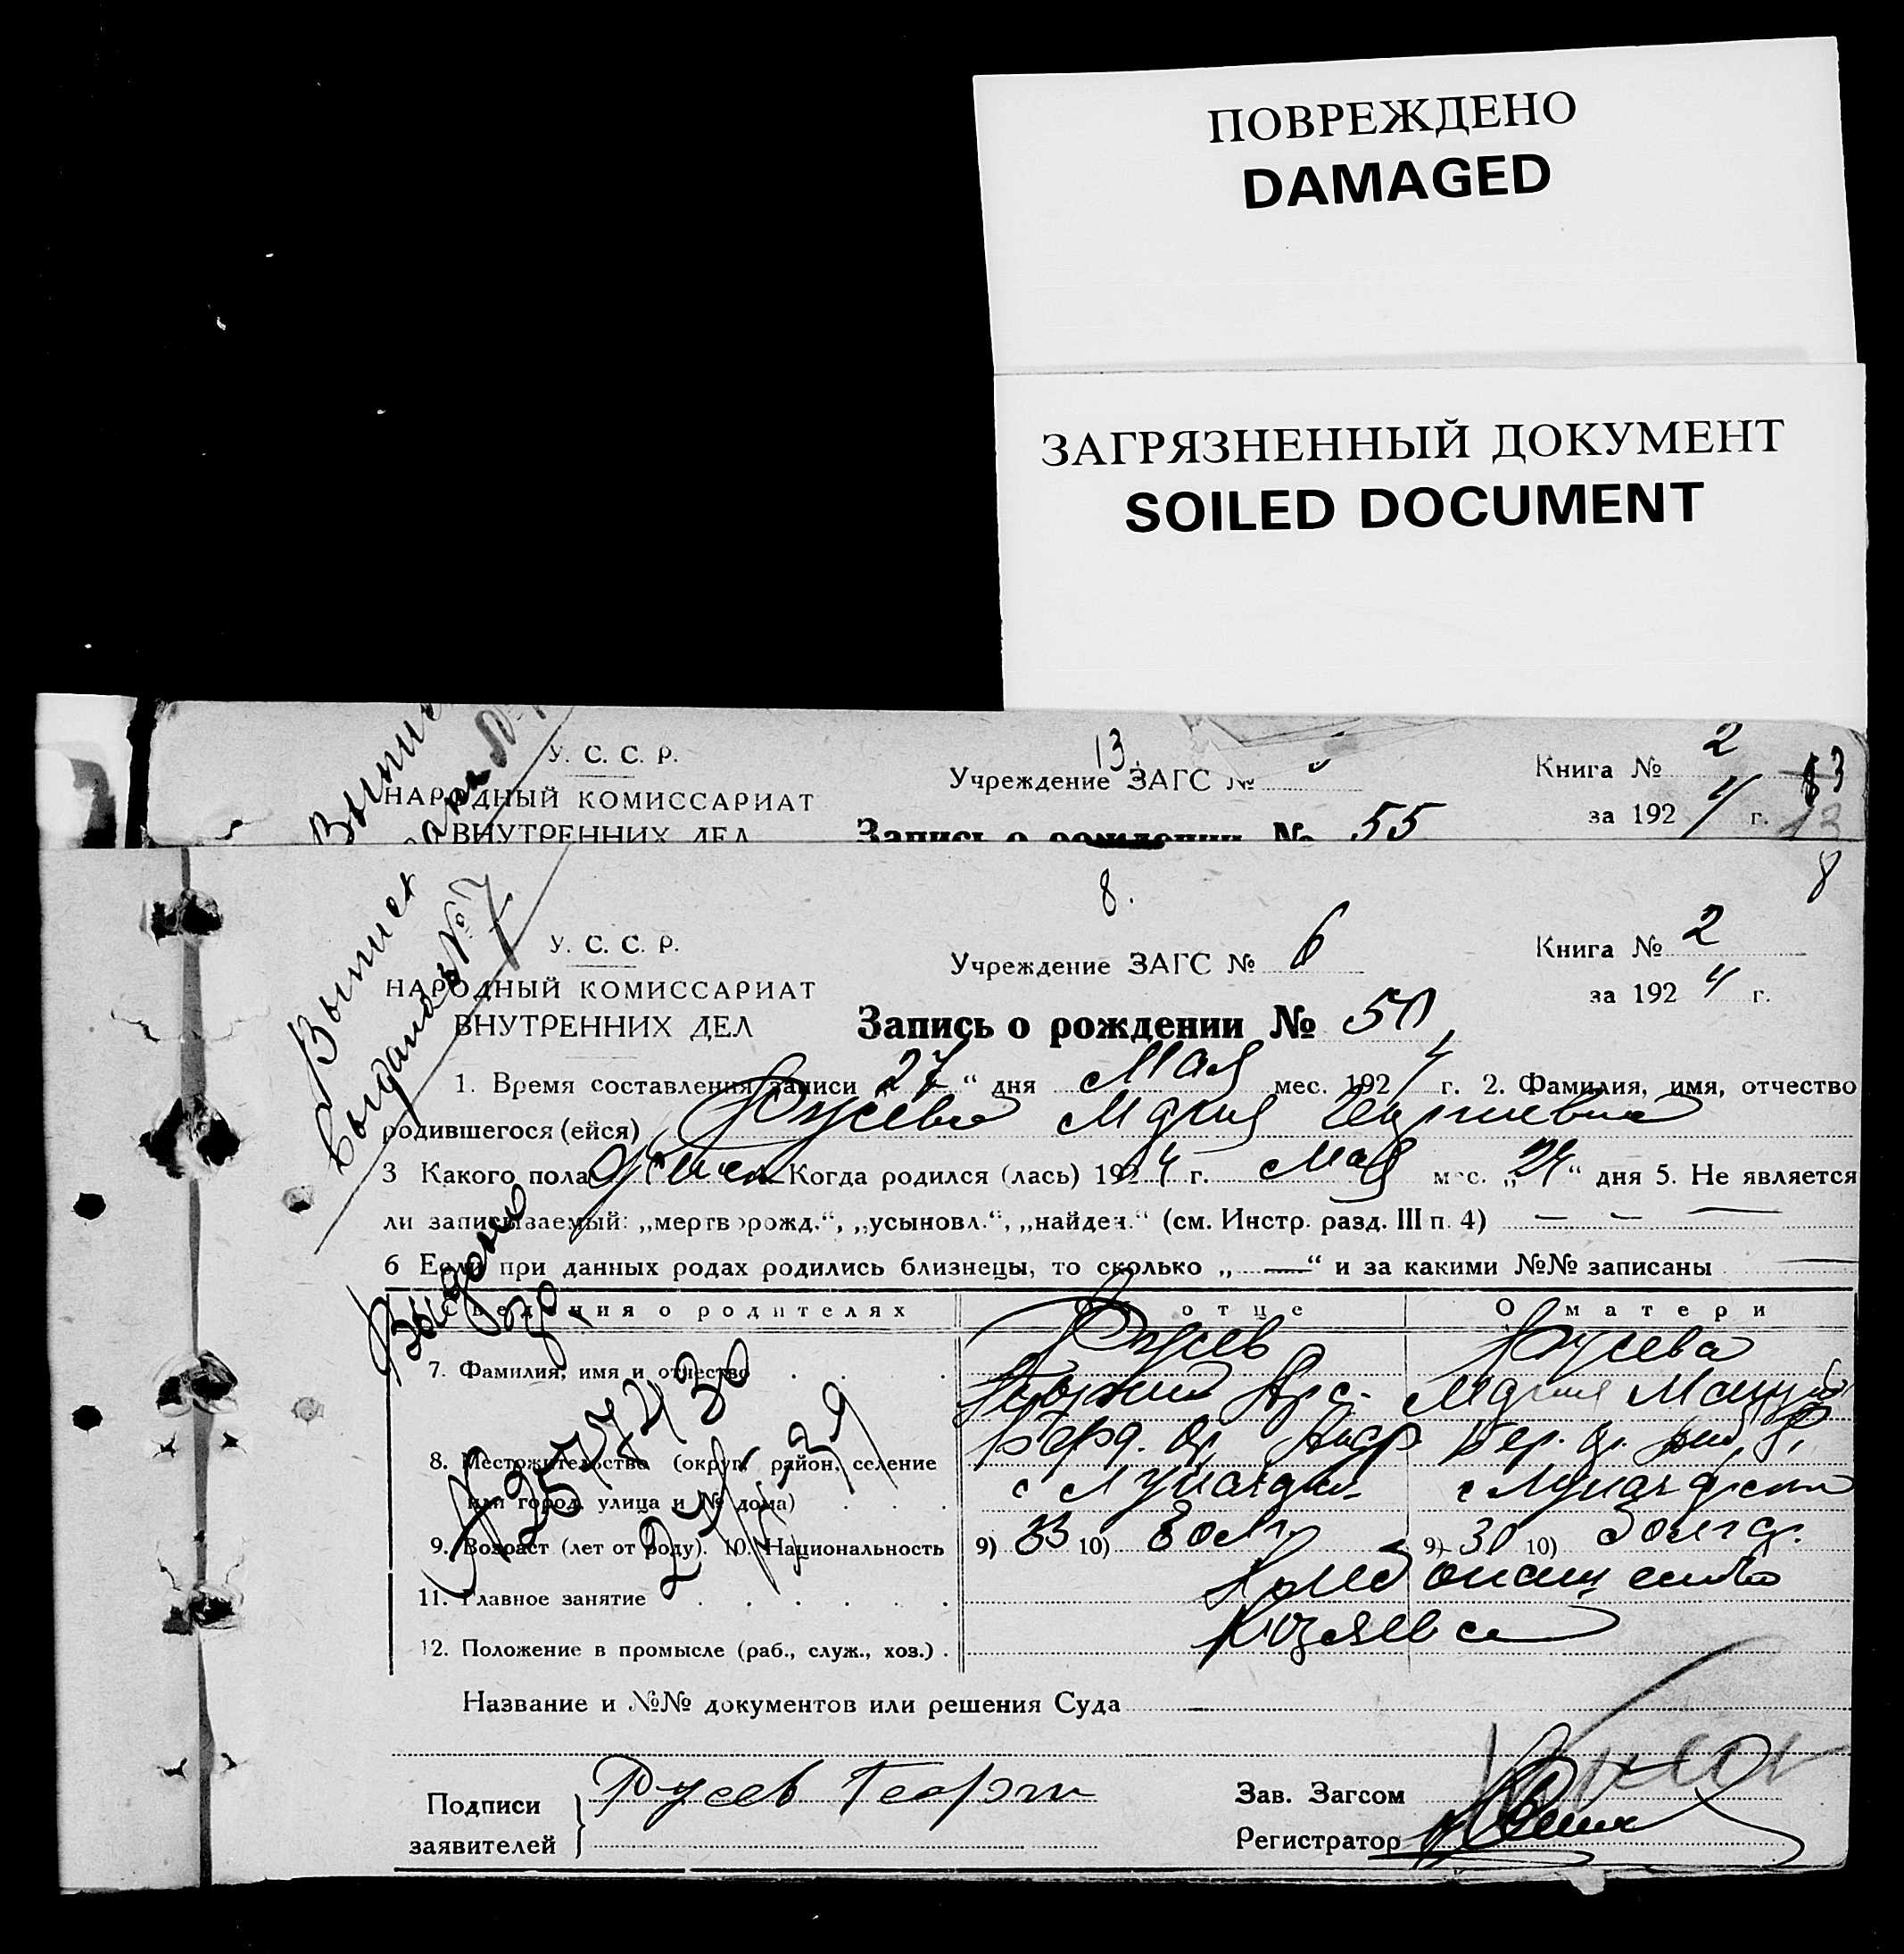 ПОВРЕЖДЕНО
DAMAGED
ЗАГРЯЗНЕННЫЙ ДОКУМЕНТ
SOILED DOCUMENT
13.
У. С. С. Р.
НАРОДНЫЙ КОМИССАРИАТ
ВНУТРЕННИХ ДЕЛ
Учреждение ЗАГС №
Книга № 2
за 1924 г.
13
Запись о рождении № 55
8
8.
Выписк
выдана № 7
У. С. С. Р.
НАРОДНЫЙ КОМИССАРИАТ
ВНУТРЕННИХ ДЕЛ
Учреждение ЗАГС № 6
Книга № 2
за 1924 г.
Запись о рождении № 50
1. Время составления записи „27“ дня Мая мес. 1924 г. 2. Фамилия, имя, отчество
родившегося (ейся) Русева Мария Георгиевна
3 Какого пола Женск Когда родился (лась) 1924 г. Мая мес. „24“ дня 5. Не является
ли записываемый: „мертворожд.“, „усыновл.“, „найден.“ (см. Инстр. разд. III п. 4) — — —
6 Если при данных родах родились близнецы, то сколько „—“ и за какими №№ записаны —
Сведения о родителях
Об отце
О матери
7. Фамилия, имя и отчество
Русев
Русева
Георгий
Мария
8. Местожительство (округ, район, селение
или город, улица и № дома)
Берд. Ок.
Бер. Ок.
с
с
9. Возраст (лет от роду). 10. Национальность
9) 33 10) Болг.
9) 30 10) Болгар.
11. Главное занятие
Хлебопашество
12. Положение в промысле (раб., служ., хоз.)
Хозяева
Выдано
Название и №№ документов или решения Суда —
Подписи
заявителей
Русев Георги
Зав. Загсом
Регистратор